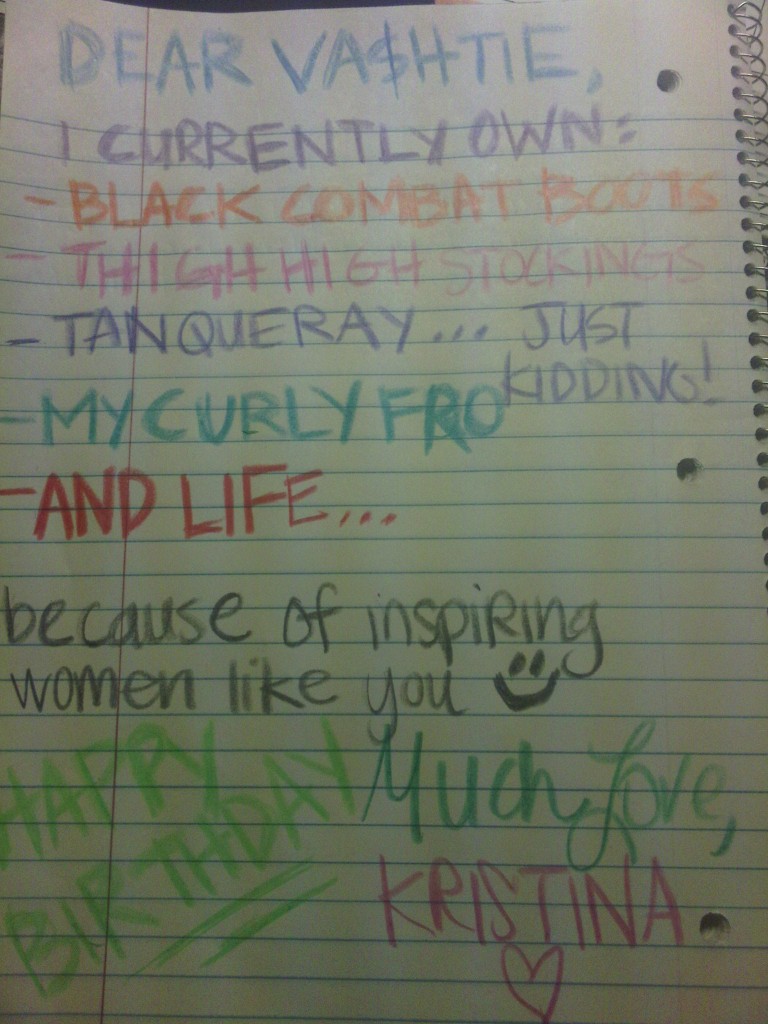 DEAR VA$HTIE,
I CURRENTLY OWN:
- BLACK COMBAT BOOTS
- THIGH HIGH STOCKINGS
- TANQUERAY... JUST
KIDDING!
- MY CURLY FRO
- AND LIFE...
because of inspiRing
women like you
HAPPY
BIRTHDAY
Much Love,
KRISTINA